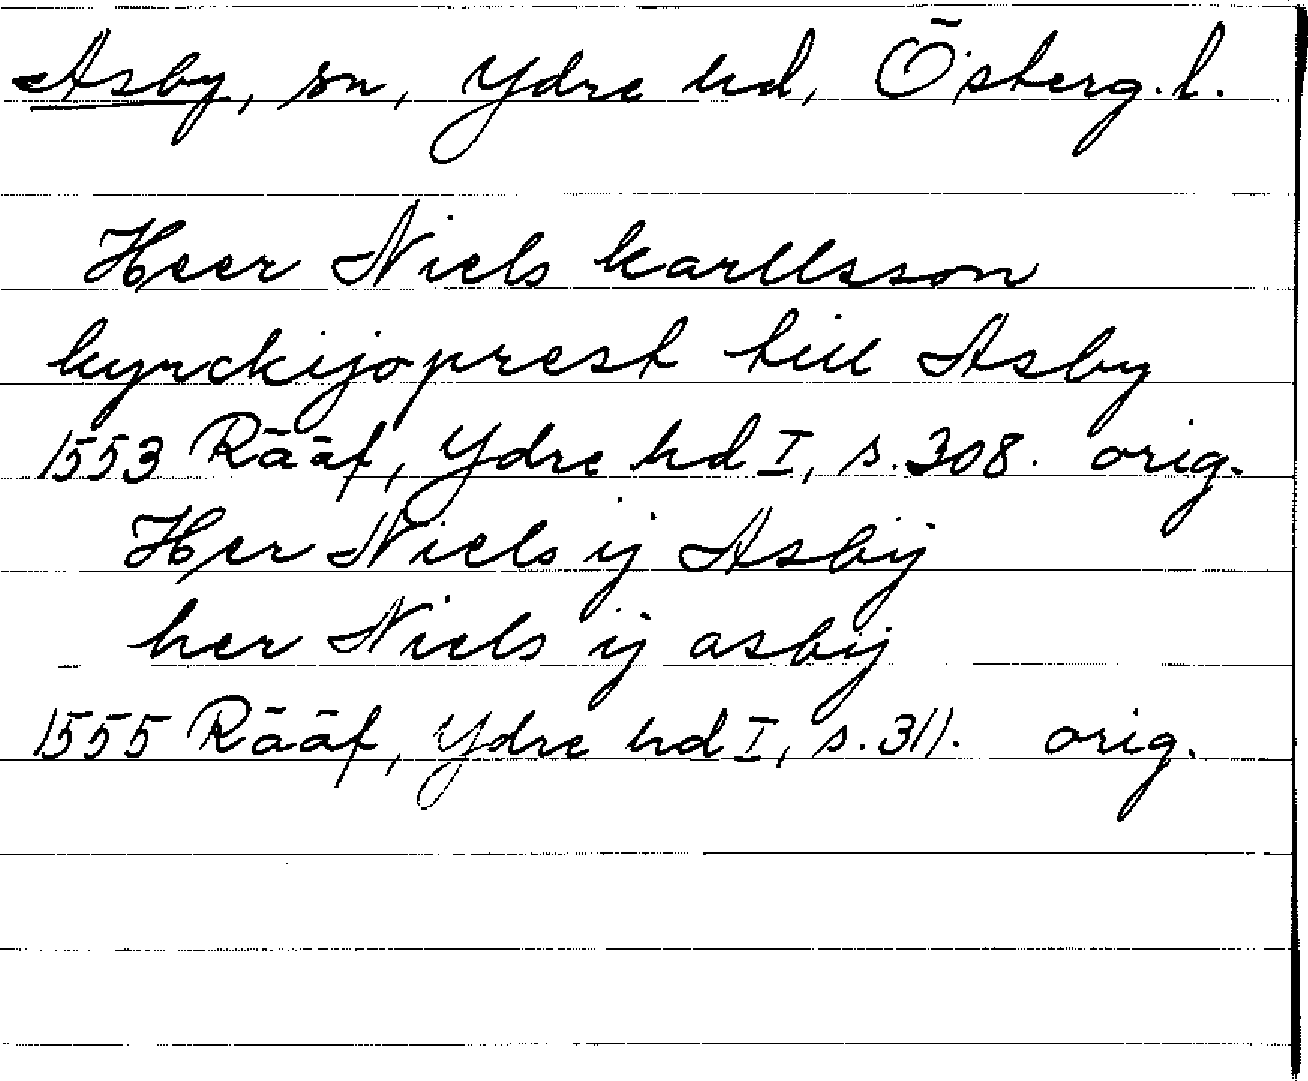 Asby, sn, Ydre hd, Österg. l.
Heer Niels karllsson
kyrckijoprest till Asby
1553 Rääf, Ydre hd I, s. 308. orig.
Her Niels ij Asbij
her Niels ij asbij
1555 Rääf, Ydre hd I, s. 311. orig.